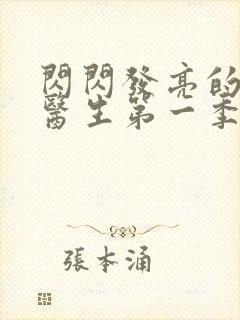 閃閃發亮的
醫生第一季
張本涌